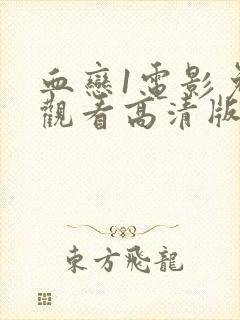 血戀1電影
觀看高清版
東方飛龍